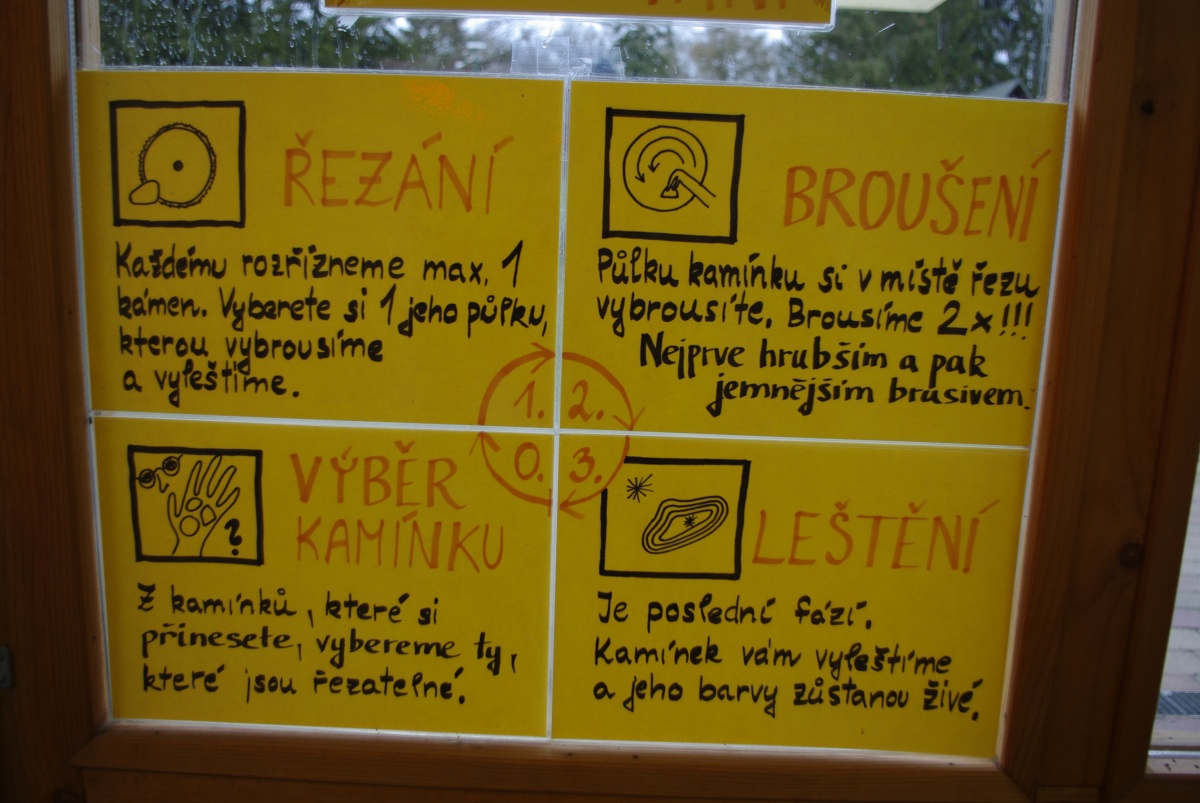 ŘEZÁNÍ
Každému rozřízneme max. 1
kámen. Vyberete si 1 jeho půlku,
kterou vybrousíme
a vyleštíme.
BROUŠENÍ
Půlku kamínku si v místě řezu
vybrousíte. Brousíme 2x!!!
Nejprve hrubším a pak
jemnějším brusivem.
1. 2.
0. 3.
VÝBĚR
KAMÍNKU
?
Z kamínků, které si
přinesete, vybereme ty,
které jsou řezatelné.
LEŠTĚNÍ
Je poslední fází.
Kamínek vám vyleštíme
a jeho barvy zůstanou živé.